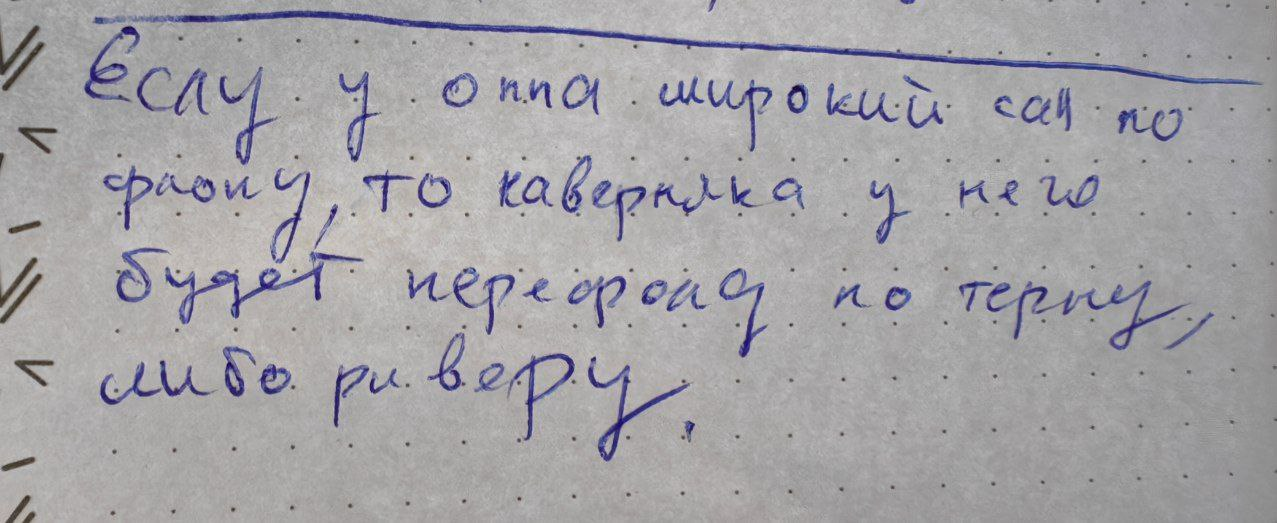 Если у оппа широкий сац по
флопу, то наверняка у него
будет перефолд по терну,
либо риверу.